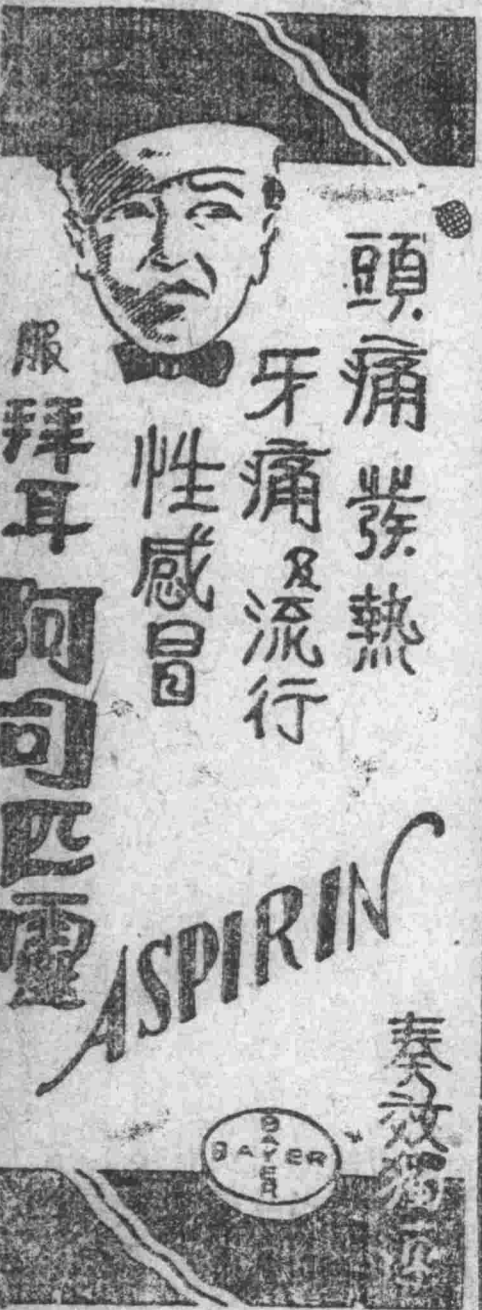 頭痛發熱
牙痛及流行
性感冒
服拜耳
阿司匹靈
ASPIRIN
奏效獨一
BAYER
BAYER